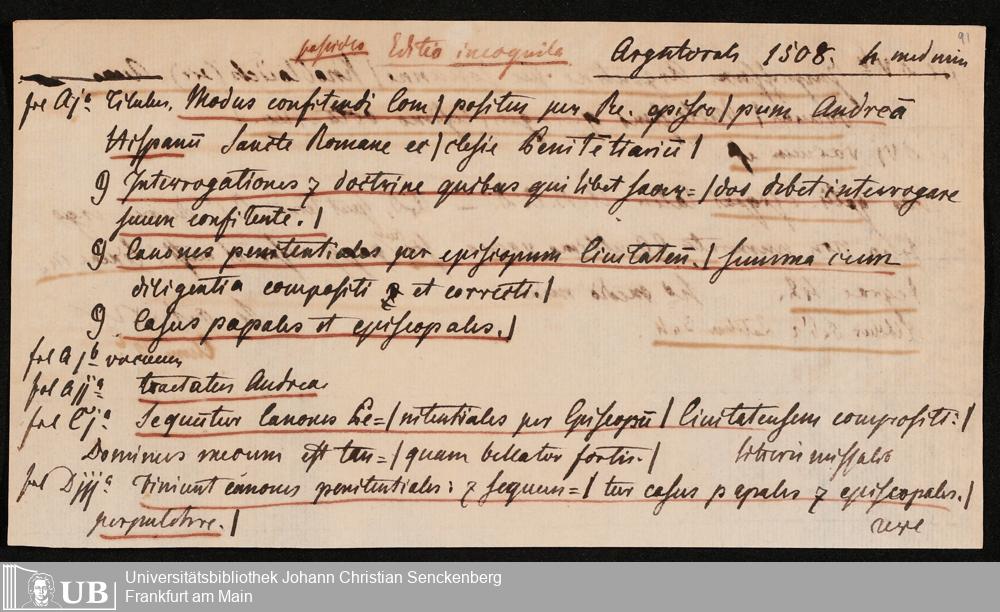 91
Editio incognita Argntorati 1508.
fol Aja Titulus. Modus confitendi Com / positus per Re. episco / pum Andreā
Hispanū Sancte Romane ec / clesie Penitētiariū /
9) Interrogationes ⁊ doctrine quibus quilibet sacer= / dos debet interrogare
suum confitentē. /
9) Canones penitentiales per episcopum Civitateñ. / summa cum
diligentia compositi et correcti. /
9) Casus papales et episcopales. /
fol A jb vacuum
fol A jja tractatus Andreae
fol Cja Sequūtur Canones Pe= / nitentiales per Episcopū / Civitatensem compositi: /
Dominus mecum est tan= / quam bellator fortis. /
fol Djjja Finiunt canones penitentiales: ⁊ sequun= / tur casus papales ⁊ episcopales. /
perpulchre. /
UB Universitätsbibliothek Johann Christian Senckenberg
Frankfurt am Main